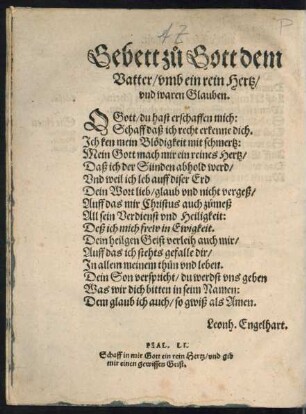 AZ
Gebett zů Gott dem
Vatter/vmb ein rein Hertz/
vnd waren Glauben.
O Gott/du hast erschaffen mich:
Schaff daß ich recht erkenne dich.
Ich ken mein Blödigkeit mit schmertz:
Mein Gott mach mir ein reines Hertz/
Daß ich der Sünden abhold werd/
Vnd weil ich leb auff diser Erd
Dein Wort lieb/glaub vnd nicht vergeß/
Auff das mir Christus auch zůmeß
All sein Verdienst vnd Heiligkeit:
Deß ich mich frew in Ewigkeit.
Dein heilgen Geist verleih auch mir/
Auff das ich stehts gefalle dir/
In allem meinem thůn vnd leben.
Dein Son verspricht/du werdst vns geben
Was wir dich bitten in seim Namen:
Dem glaub ich auch/so gwiß als Amen.
Leonh. Engelhart.
PSAL. LI.
Schaff in mir Gott ein rein Hertz/vnd gib
mir einen gewissen Geist.